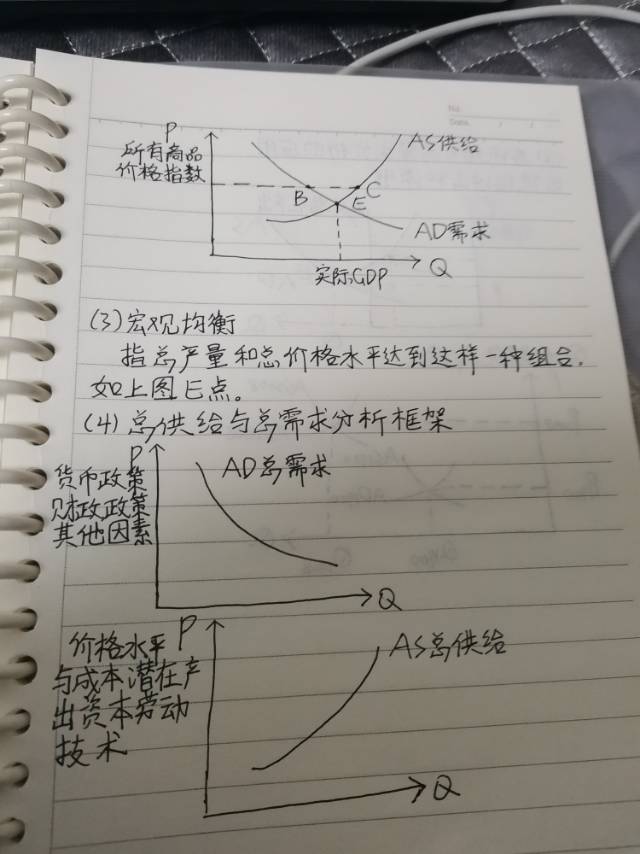 No.
Date.
P
AS供给
所有商品
价格指数
B
C
E
AD需求
实际GDP
Q
(3)宏观均衡
指总产量和总价格水平达到这样一种组合,
如上图E点。
(4)总供给与总需求分析框架
P
货币政策
AD总需求
财政政策
其他因素
Q
价格水平
P
AS总供给
与成本潜在产
出资本劳动
技术
Q